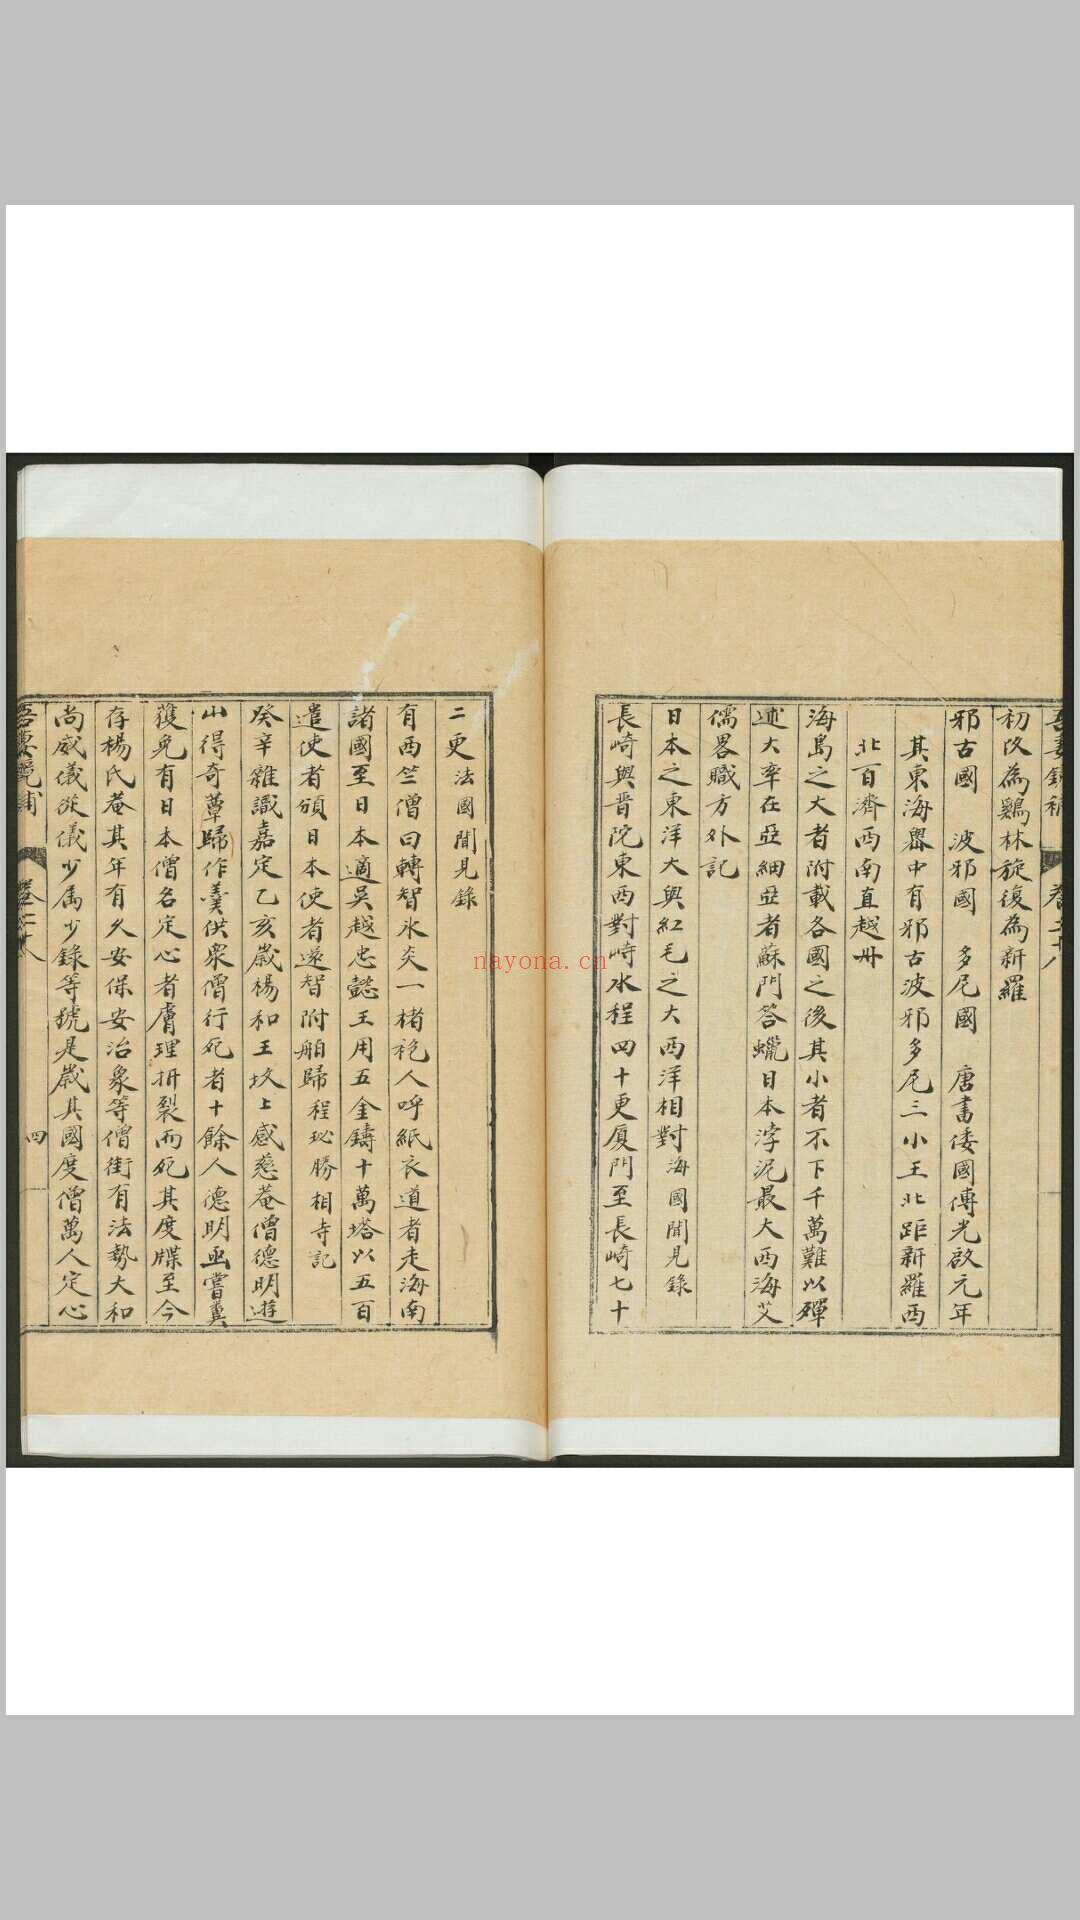 吾妻鏡補 卷二十八
初改為鷄林旋復為新羅
邪古國 波邪國 多尼國 唐書倭國傳光啟元年
其東海嶴中有邪古波邪多尼三小王北距新羅西
北百濟西南直越州
海島之大者附載各國之後其小者不下千萬難以殫
述大率在亞細亞者蘇門答蠟日本浡泥最大西海艾
儒畧職方外記
日本之東洋大與紅毛之大西洋相對海國聞見錄
長崎與晋陀東西對峙水程四十更厦門至長崎七十
二更法國聞見錄
有西竺僧曰轉智氷炎一楮袍人呼紙衣道者走海南
諸國至日本適吳越忠懿王用五金鑄十萬塔以五百
遣使者頒日本使者遂智附舶歸程珌勝相寺記
癸辛雜識嘉定乙亥歲楊和王坟上感慈菴僧德明遊
山得奇蕈歸作羹供衆僧行死者十餘人德明亟嘗糞
獲免有日本僧名定心者膚理拆裂而死其度牒至今
存楊氏菴其年有久安保安治象等僧街有法勢大和
尚威儀從儀少属少錄等號是歲其國度僧萬人定心
吾妻鏡補
四
nayona.cn